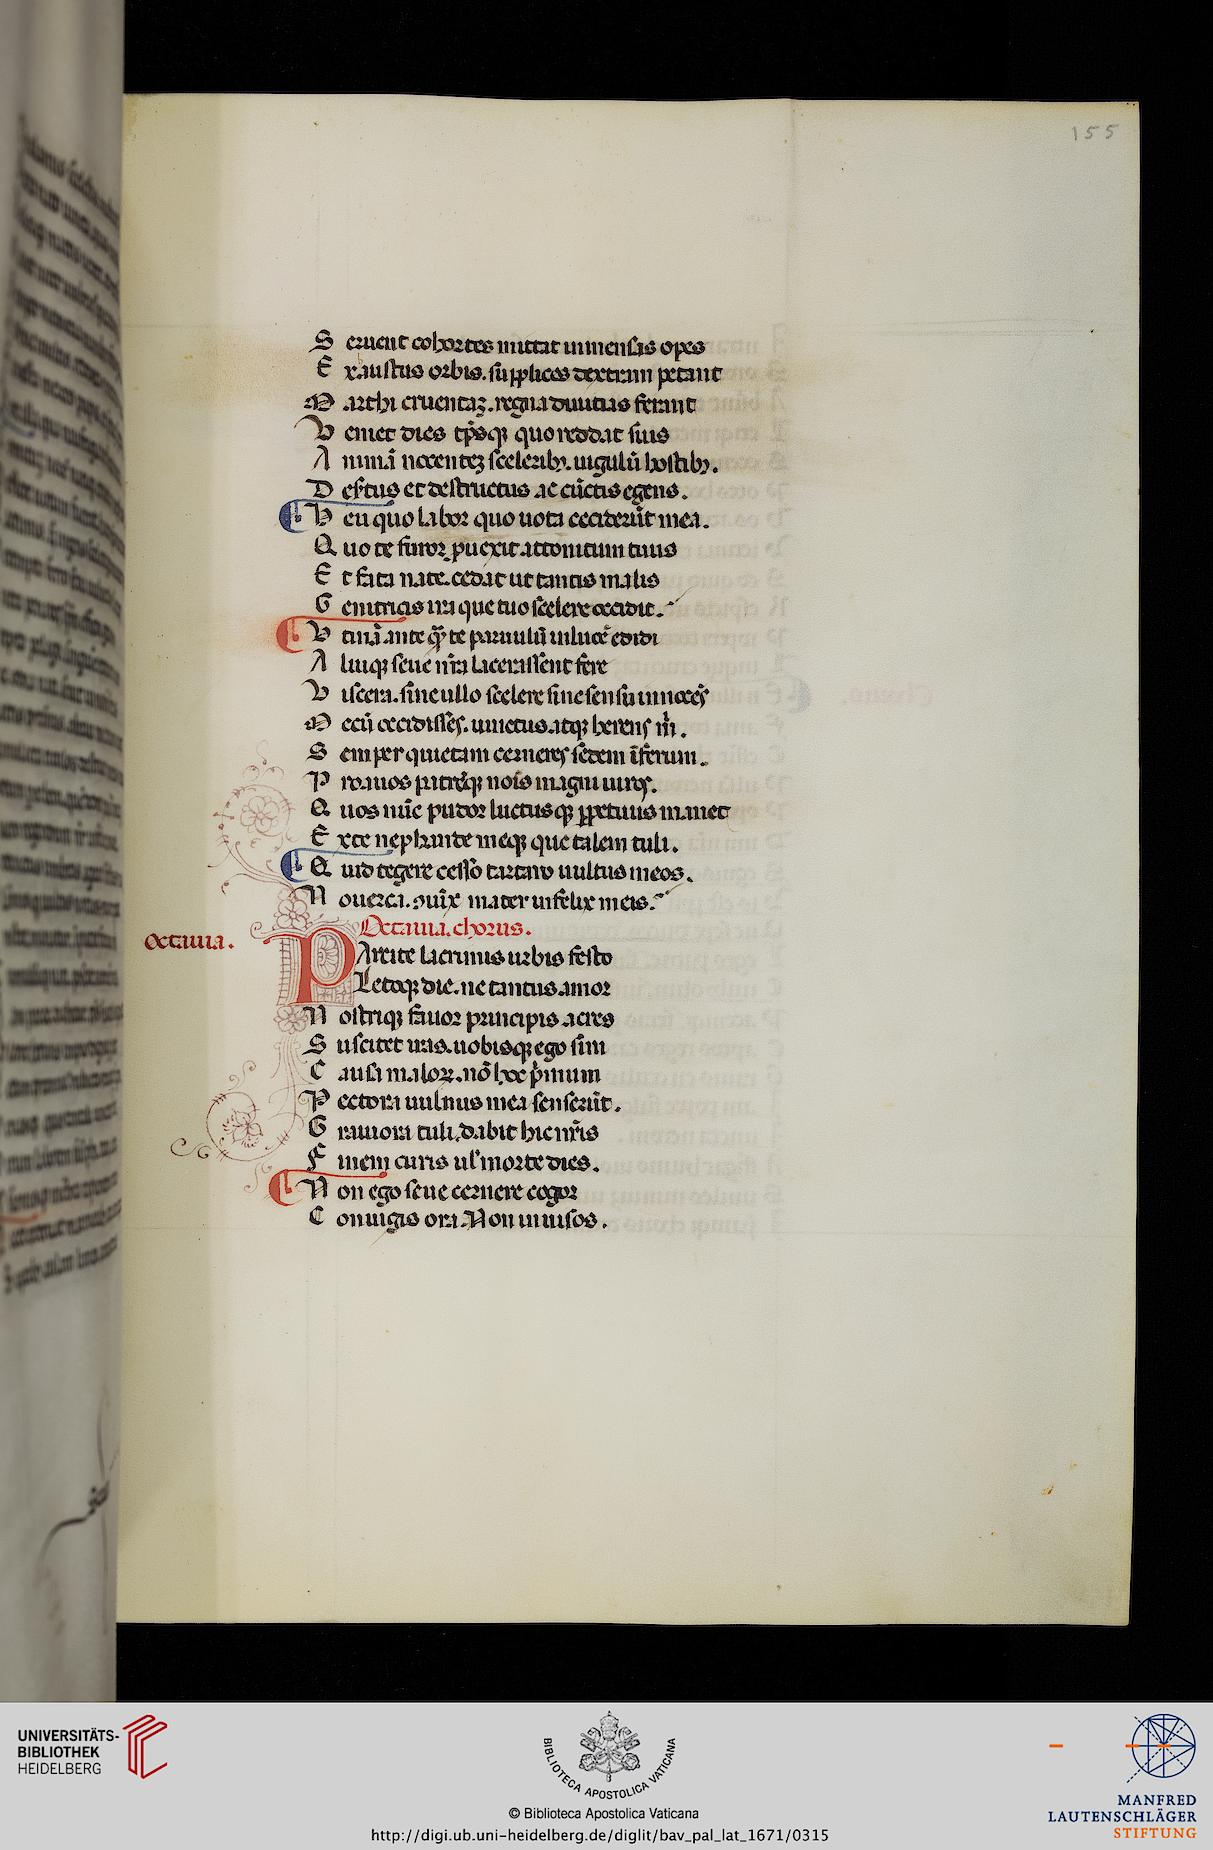 155
S eruent cohortes mittat immensas opes
E xaustus orbis. supplices dextram petant
P arthi cruentaz. regna diuitias ferant
V eniet dies tp̄sqꝫ quo reddat suis
A nimā nocenteꝫ sceleribꝫ. iugulū hostibꝫ.
D esertus et destructus ac cūctis egens.
H eu quo labor quo uota cecider̄ut mea.
Q uo te furor ꝓuexit attonitum tuus
E t fata nate. cedat ut tantis malis
G enitricis ira que tuo scelere occidit.
V tinā ante qͣ̄ te paruulū in lucē edidi
A luiqꝫ seue nr̄a lacerassent fere
V iscera. sine ullo scelere sine sensu innocēs
M ecū occidisses. iunctus atqꝫ herens m̄.
S emper quietam cerneres sedem īferum.
P roauos patrēqꝫ nois magni uiros.
Q uos nūc pudor luctusqꝫ ꝑpetuus manet
E xte nephande meqꝫ que talem tuli.
Q uid tegere cesso tartaro uultus meos.
N ouerca. ɔiūx mater infelix meis.
Octauia. chorus.
octauia.
PArcite lacrimis urbis festo
Letoqꝫ die. ne tantus amor
N ostriqꝫ fauor principis acres
S uscitet iras. uobisqꝫ ego sim
C ausa maloꝝ. nō hoc pͥmum
P ectora uulnus mea senser̄ut.
G rauiora tuli. dabit hic nr̄is
F inem curis ul' morte dies.
N on ego seue cernere cogor
C oniugis ora. Non inuisos.
UNIVERSITÄTS-
BIBLIOTHEK
HEIDELBERG
BIBLIOTECA APOSTOLICA VATICANA
© Biblioteca Apostolica Vaticana
http://digi.ub.uni-heidelberg.de/diglit/bav_pal_lat_1671/0315
MANFRED
LAUTENSCHLÄGER
STIFTUNG